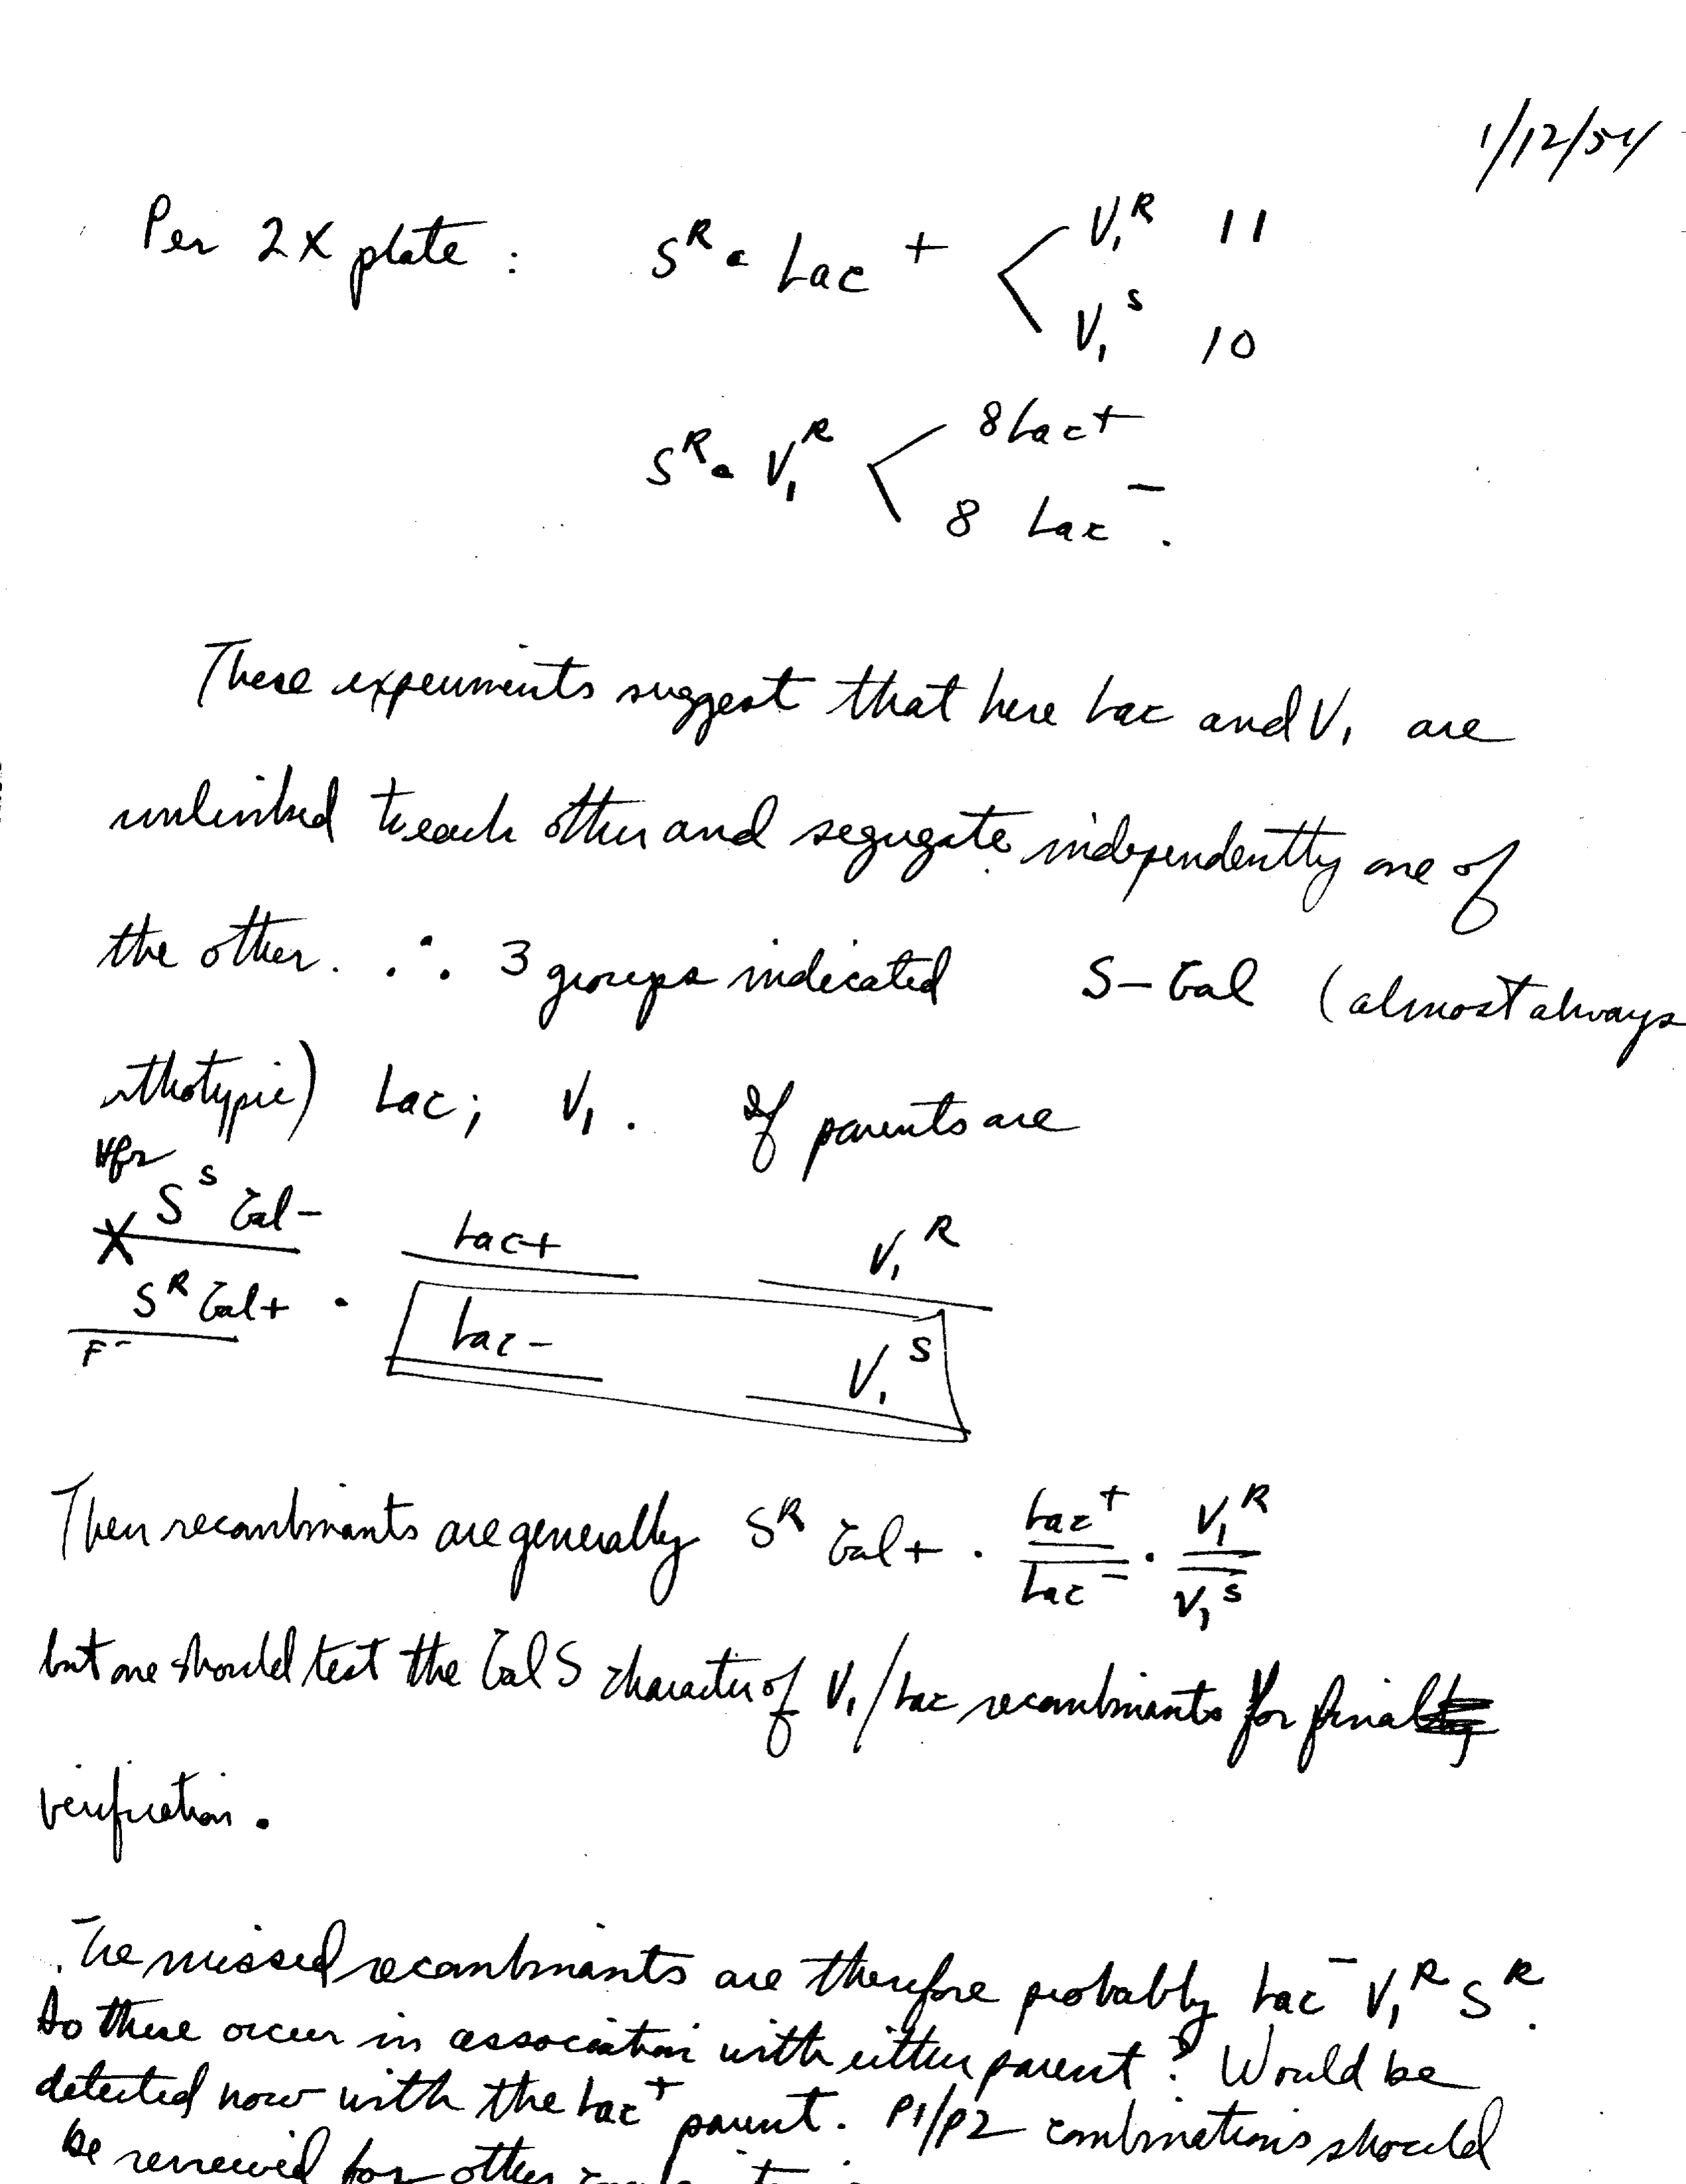 1/12/54
Per 2X plate : S^R · Lac + < V₁^R 11
V₁^S 10
S^R · V₁^R < 8 Lac+
8 Lac⁻.
These experiments suggest that here Lac and V₁ are
unlinked to each other and segregate independently one of
the other. ∴ 3 groups indicated S–Gal (almost always
orthotypic) Lac; V₁. If parents are
Hfr
X S^S Gal– Lac+ V₁^R
S^R Gal+ · Lac– V₁^S
F⁻
Then recombinants are generally S^R Gal+ · Lac⁺/Lac⁻ · V₁^R/V₁^S
but one should test the Gal S character of V₁/Lac recombinants for final
verification.
The missed recombinants are therefore probably Lac⁻ V₁^R S^R.
Do these occur in association with either parent? Would be
detected now with the Lac⁺ parent. P1/P2 combinations should
be reviewed for other